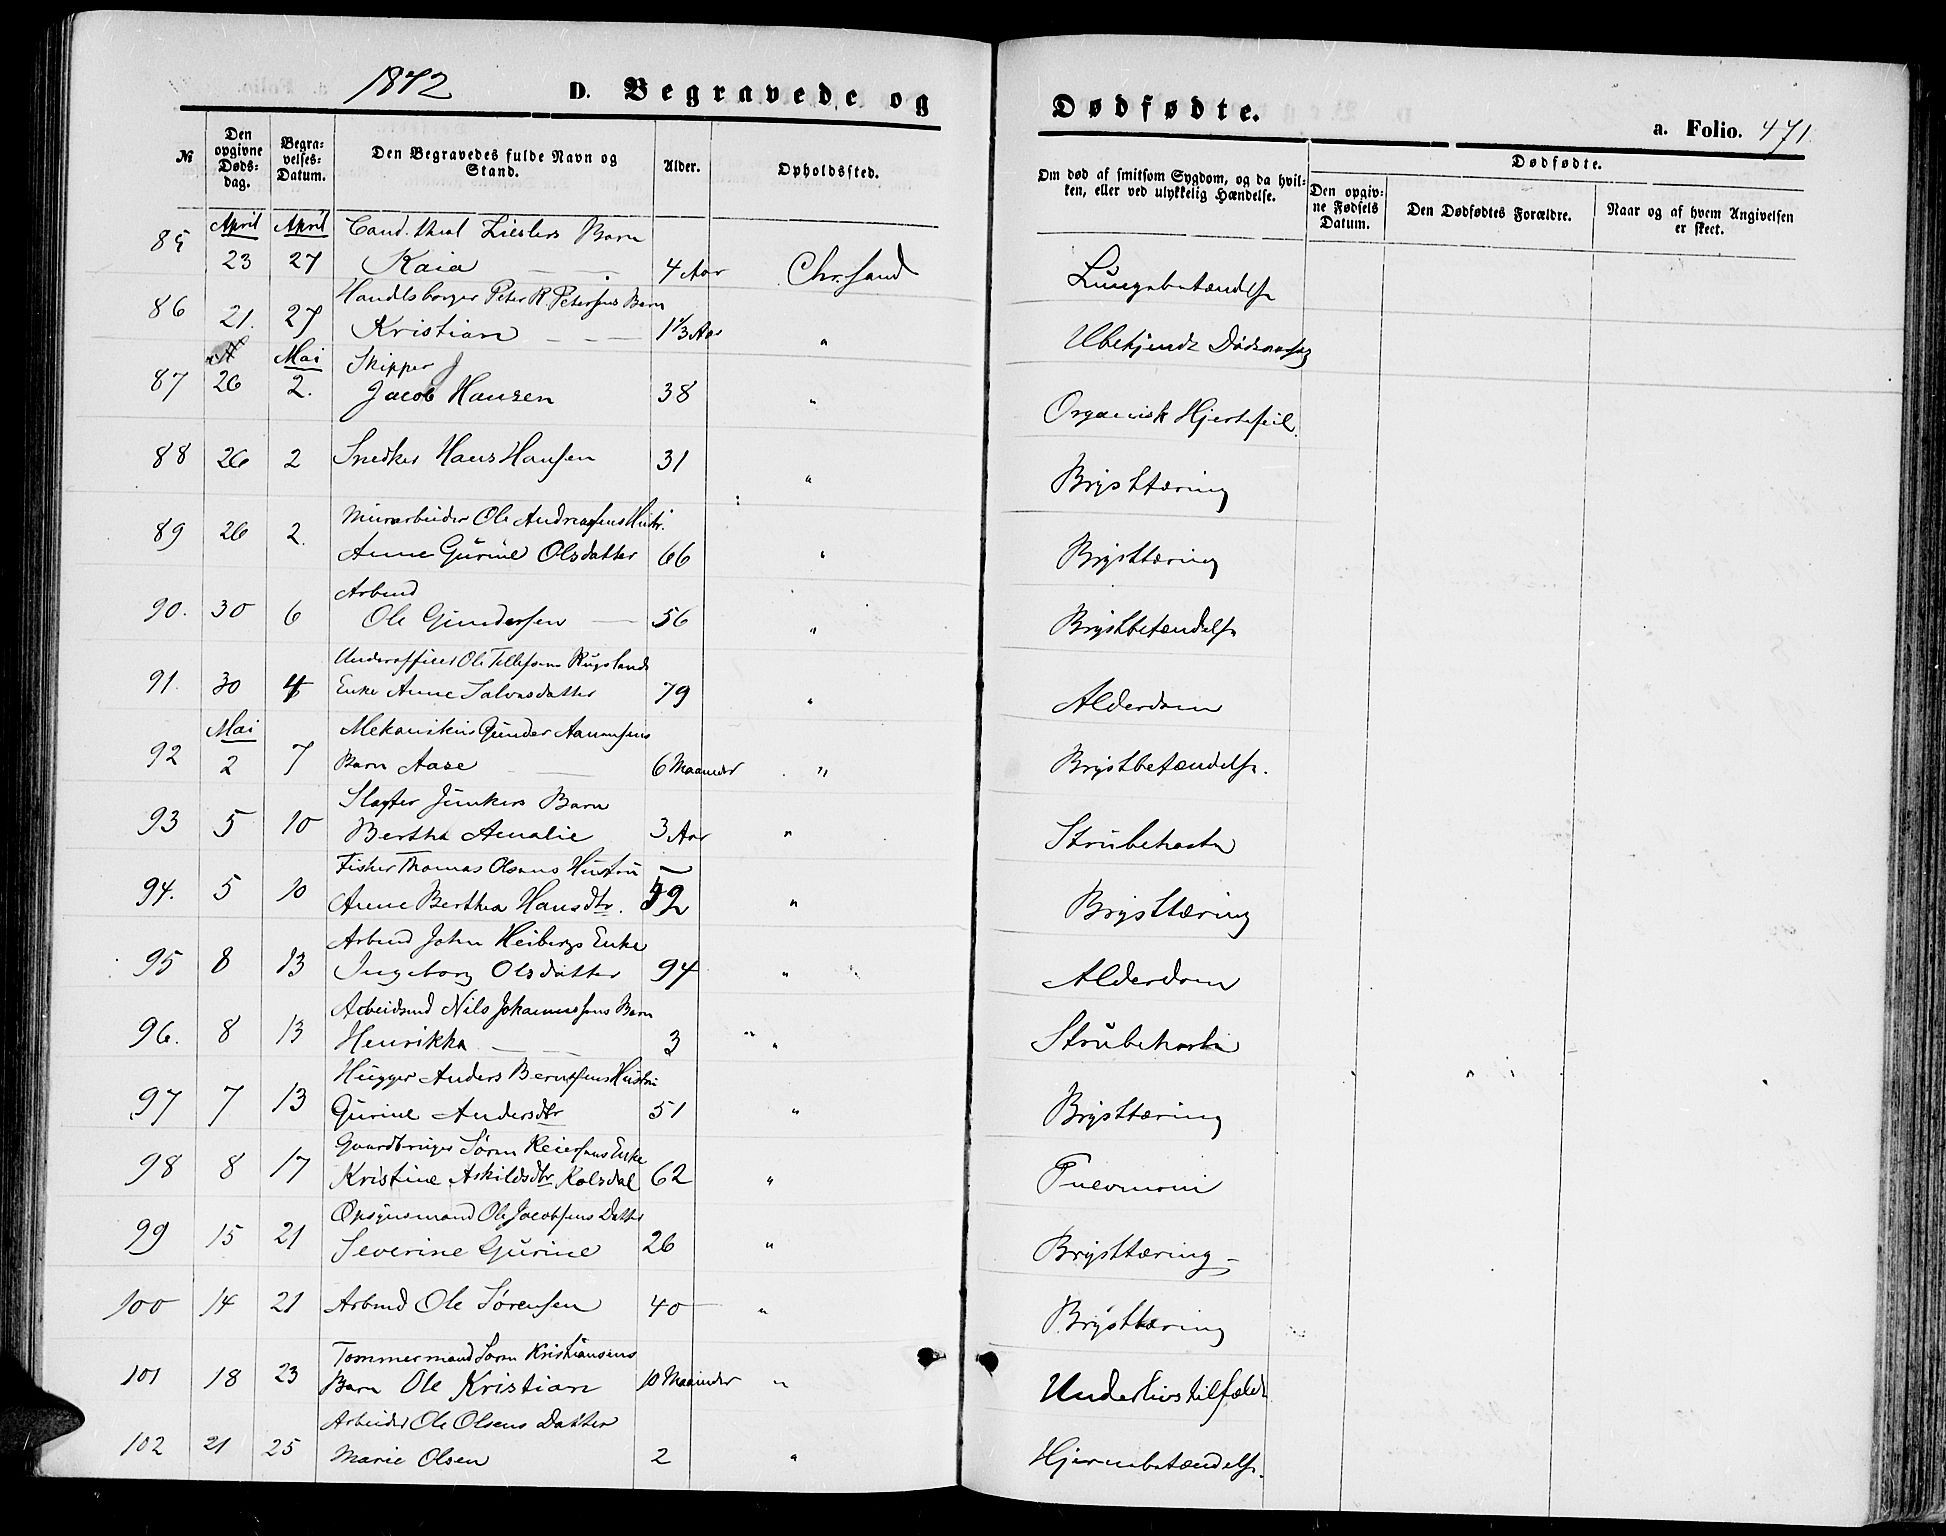 1872 D. Begravede og Dødfødte.
a. Folio. 471.
№ Den opgivne Døds-dag. Begra-velses-Datum. Den Begravedes fulde Navn og Stand. Alder. Opholdssted. Om død af smitsom Sygdom, og da hvil-ken, eller ved ulykkelig Hændelse. Dødfødte. Den opgiv-ne Fødsels Datum. Den Dødfødtes Forældre. Naar og af hvem Angivelsen er skeet.
April April Cand. theol Zieslers Barn
85 23 27 Kaia 4 Aar Chr.sand Lungebetændelse
Handlsborger Peter R. Petersens Barn
86 21. 27 Kristian 1 1/3 Aar " Ubekjendt Dødsaarsag
Mai Skipper
87 26 2. Jacob Hansen 38 " Organisk Hjertefeil.
88 26 2 Snedker Hans Hansen 31 " Brysttæring
Murarbeider Ole Andreassens Hustr.
89 26 2. Anne Gurine Olsdatter 66 " Brysttæring
Arbmd
90. 30 6 Ole Gundersen 56 " Brystbetændelse
Underofficer Ole Tellefsens Rugslands
91. 30 4 Enke Anne Salvesdatter 79 " Alderdom
Mai Mekanikus Gunder Aanensens
92 2 7 Barn Aase 6 Maaneder " Brystbetændelse.
Slagter Junkers Barn
93 5 10 Bertha Amalie 3 Aar " Strubehoste
Fisker Thomas Olsens Hustru
94. 5 10 Anne Bertha Hansdtr. 52 " Brysttæring
Arbmd John Heibergs Enke
95 8 13 Ingeborg Olsdatter 94 " Alderdom
Arbeidsmd Nils Johannessens Barn
96. 8 13 Henrikka 3 " Strubehoste
Hugger Anders Berntsens Hustru
97 7 13 Gurine Andersdtr 51 " Brysttæring
Gaardbruger Søren Reiersens Enke
98 8 17 Kristine Askildsdtr Kolsdal 62 " Pneumoni
Opsynsmand Ole Jacobsens Datter
99 15 21 Severine Gurine 26 " Brysttæring
100 14 21 Arbmd Ole Sørensen 40 " Brysttæring
Tømmermand Søren Kristiansens
101 18 23 Barn Ole Kristian 10 Maaneder " Underlivstilfælde
Arbeider Ole Olsens Datter
102 21 25 Marie Olsen 2 " Hjernebetændelse.